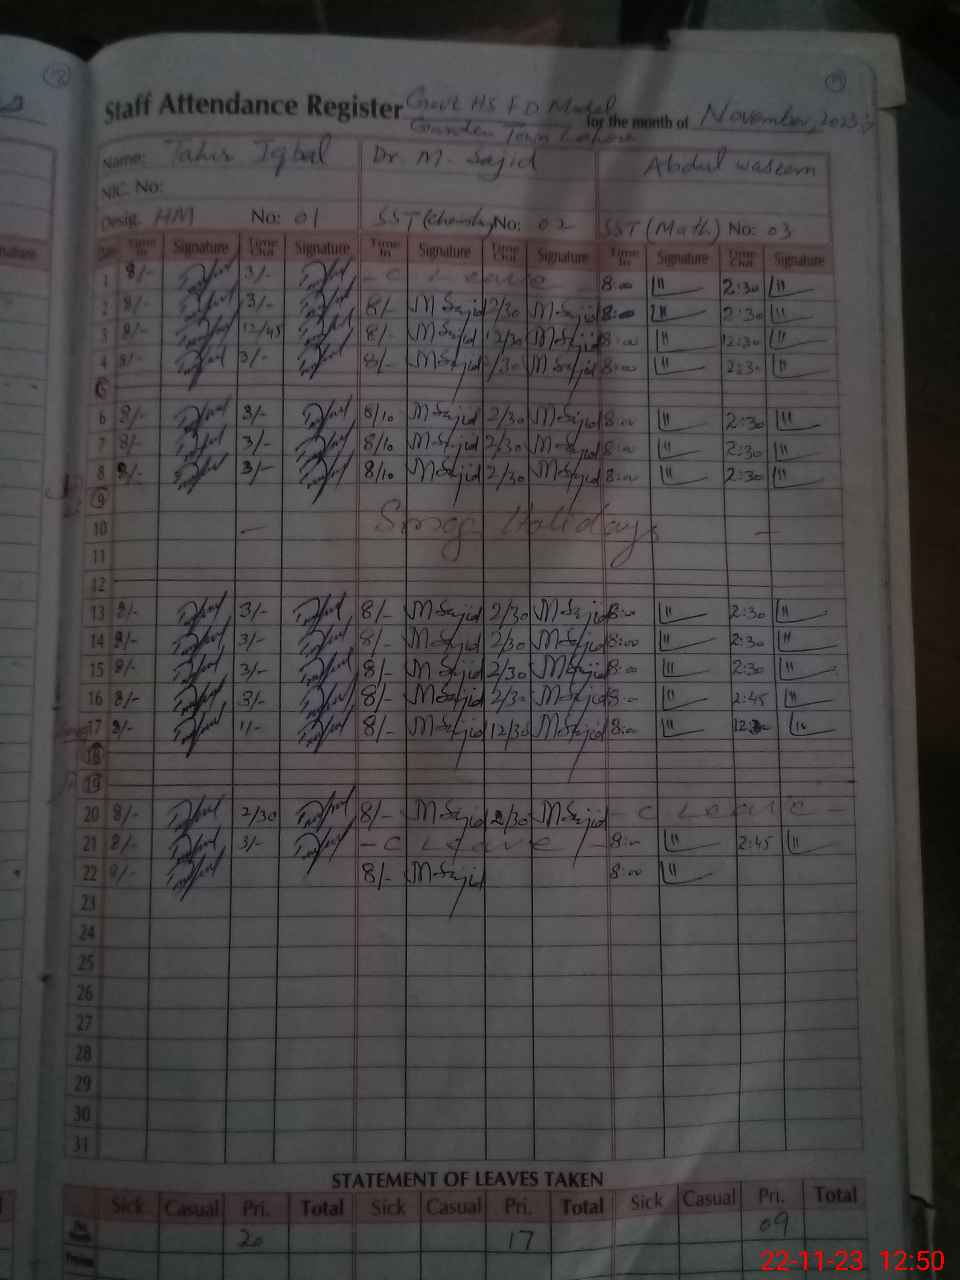 Staff Attendance Register Govt HS F D Model for the month of November, 2023
Garden Town Lahore
Name: Tahir Iqbal Dr. M. Sajid Abdul Waseem
NIC. No:
Desig. HM No: 01 SST (Chemistry) No: 02 SST (Math) No: 03
Date Time In Signature Time Out Signature Time In Signature Time Out Signature Time In Signature Time Out Signature
1 8/- 3/- - C Leave 8:00 2:30
2 8/- 3/- 8/- M Sajid 2/30 M Sajid 8:00 2:30
3 8/- 12/45 8/- M Sajid 12/30 M Sajid 8:00 12:30
4 8/- 3/- 8/- M Sajid 2/30 M Sajid 8:00 2:30
5
6 8/- 3/- 8/10 M Sajid 2/30 M Sajid 8:00 2:30
7 8/- 3/- 8/10 M Sajid 2/30 M Sajid 8:00 2:30
8 8/- 3/- 8/10 M Sajid 2/30 M Sajid 8:00 2:30
9
10 - Smog Holidays -
11
12
13 8/- 3/- 8/- M Sajid 2/30 M Sajid 8:00 2:30
14 8/- 3/- 8/- M Sajid 2/30 M Sajid 8:00 2:30
15 8/- 3/- 8/- M Sajid 2/30 M Sajid 8:00 2:30
16 8/- 3/- 8/- M Sajid 2/30 M Sajid 8:- 2:45
17 8/- 1/- 8/- M Sajid 12/30 M Sajid 8:00
18
19
20 8/- 2/30 8/- M Sajid 2/30 M Sajid - C Leave -
21 8/- 3/- - C Leave - 8:- 2:45
22 8/- 8/- M Sajid 8:00
23
24
25
26
27
28
29
30
31
STATEMENT OF LEAVES TAKEN
Sick Casual Pri. Total Sick Casual Pri. Total Sick Casual Pri. Total
20 17 09
Previous
22-11-23 12:50